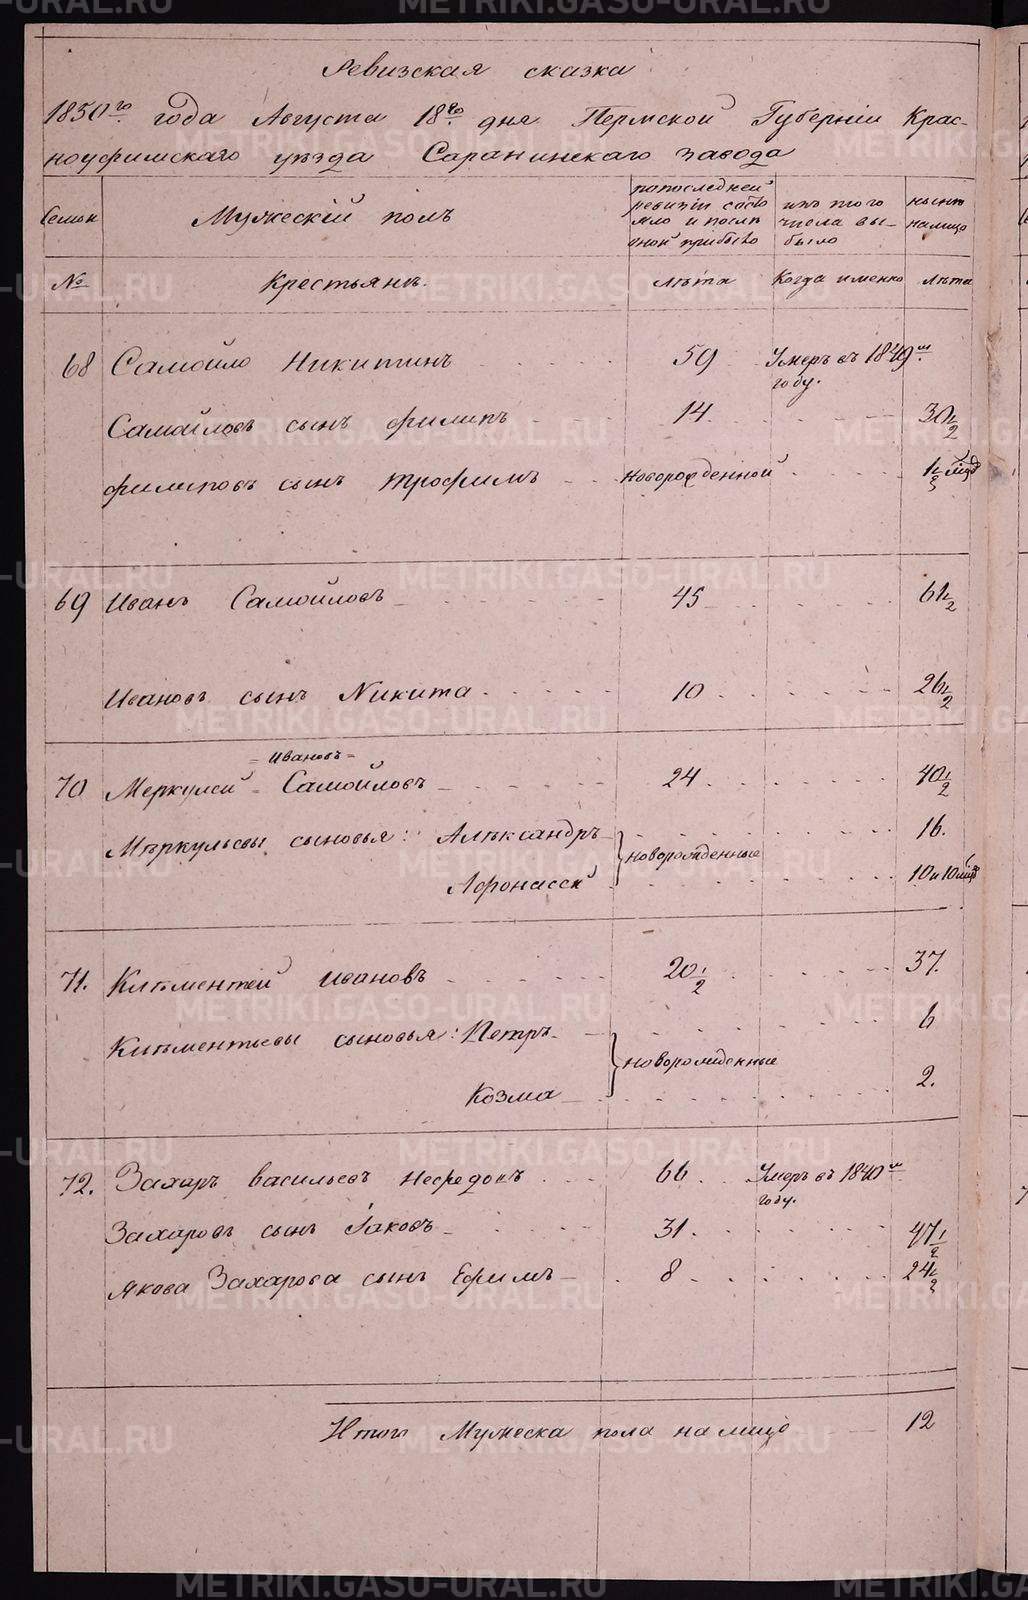 Ревизская сказка
1850го года Августа 18го дня Пермской Губернiи Крас-
ноуфимскаго уѣзда Саранинскаго завода
Семьи
Мужескiй полъ
по последней ревизiи состояло и после оной прибыло
изъ того числа выбыло
нынѣ налицо
№
Крестьянъ.
лѣта
Когда именно
лѣта
68 Самойло Никитинъ 59 Умеръ въ 1849м году.
Самойловъ сынъ Филипъ 14 30 1/2
Филиповъ сынъ Трофимъ новорожденной
69 Иванъ Самойловъ 45 61 1/2
Ивановъ сынъ Никита 10 26 1/2
= Ивановъ =
70 Меркулей Самойловъ 24 40 1/2
Мѣркульевы сыновья: Алѣксандръ новорожденные 16.
Афонасей 10 и 10 мцѣ
71. Клѣментей Ивановъ 20 1/2 37.
Клѣментьевы сыновья: Петръ новорожденные 6
Козма 2.
72. Захаръ Васильевъ 66 Умеръ въ 1840м году.
Захаровъ сынъ Iаковъ 31. 47 1/2
Якова Захарова сынъ Ефимъ 8 24 1/2
Итого Мужеска пола налицо 12
METRIKI.GASO-URAL.RU